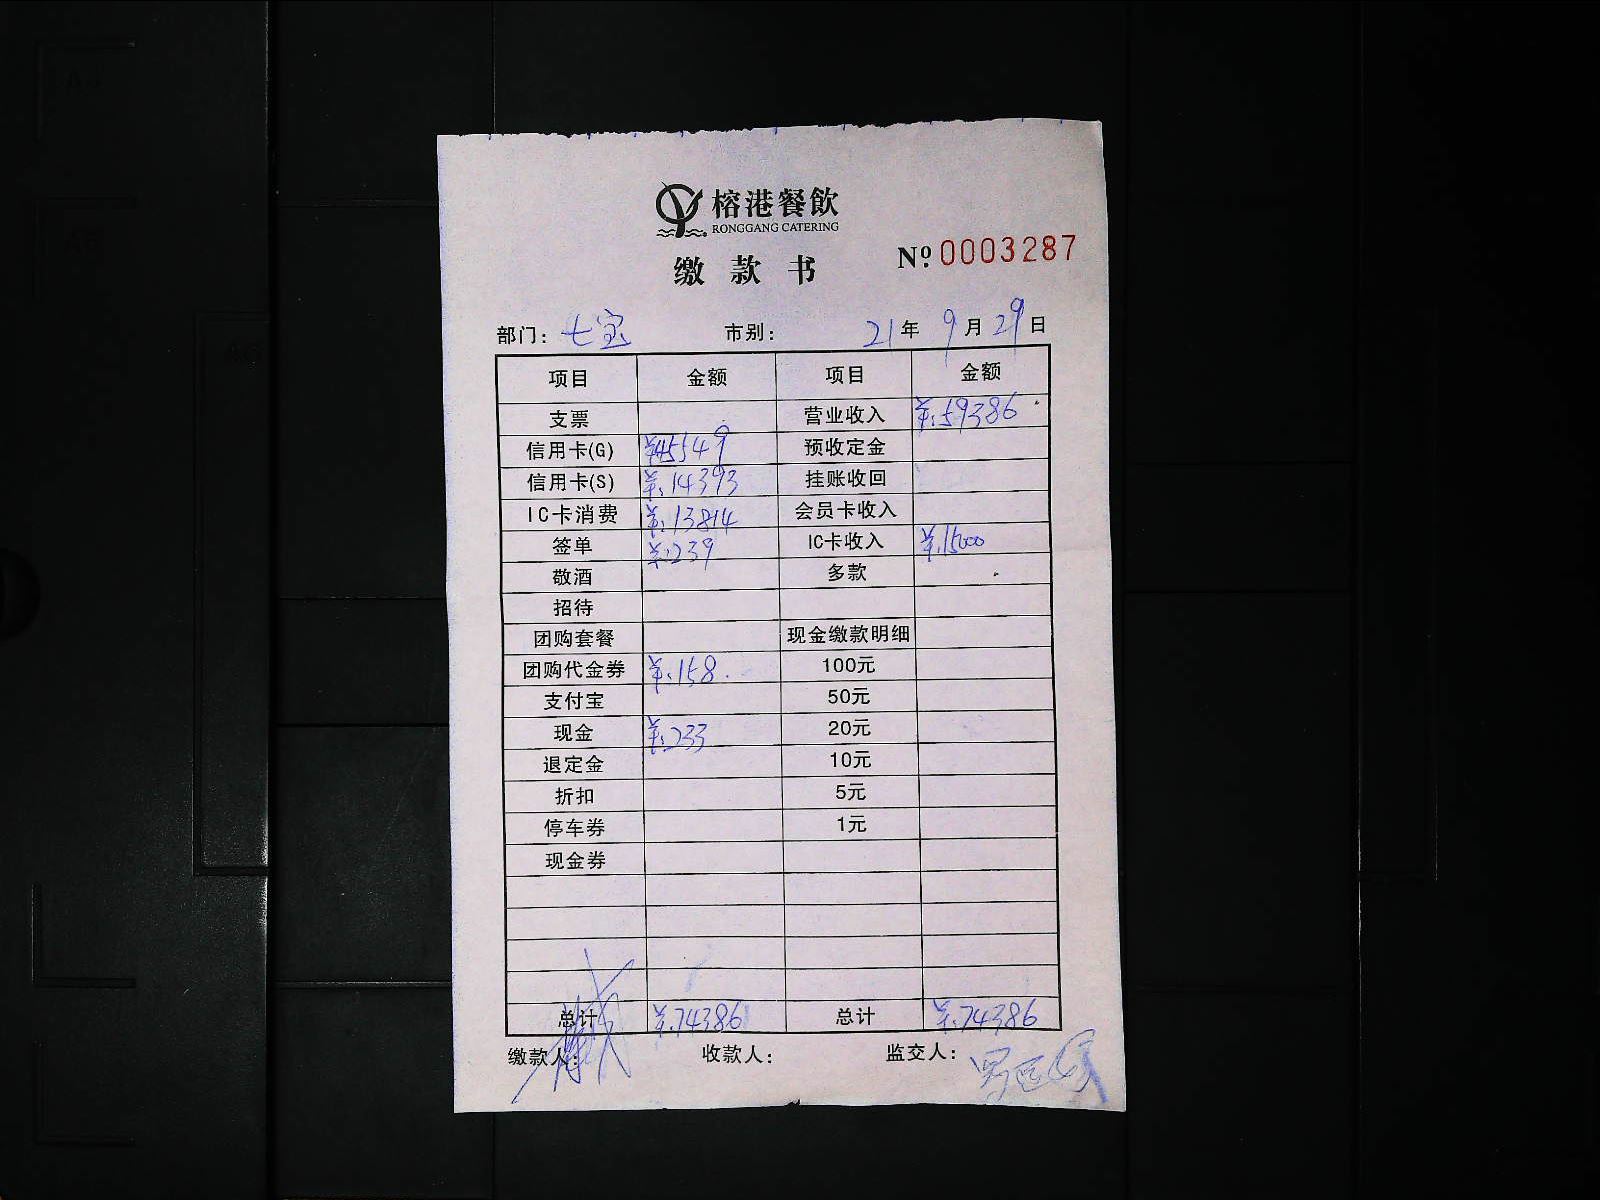 榕港餐飲
RONGGANG CATERING
缴款书
№ 0003287
部门: 七宝 市别: 21年9月29日
项目 金额 项目 金额
支票 营业收入 ¥:59386
信用卡(G) ¥45549 预收定金
信用卡(S) ¥:14393 挂账收回
IC卡消费 ¥:13814 会员卡收入
签单 ¥:239 IC卡收入 ¥:15000
敬酒 多款
招待
团购套餐 现金缴款明细
团购代金券 ¥:158. 100元
支付宝 50元
现金 ¥:233 20元
退定金 10元
折扣 5元
停车券 1元
现金券
总计 ¥:74386 总计 ¥:74386
缴款人: 收款人: 监交人: